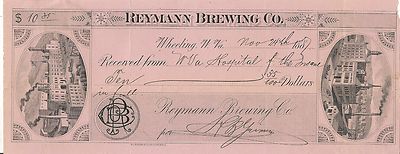 $ 10 35 REYMANN BREWING CO.
Wheeling, W. Va. Nov 24th 1887
Received from W Va Hospital of the Insane
Ten 35/100 Dollars
in full
Reymann Brewing Co.
per